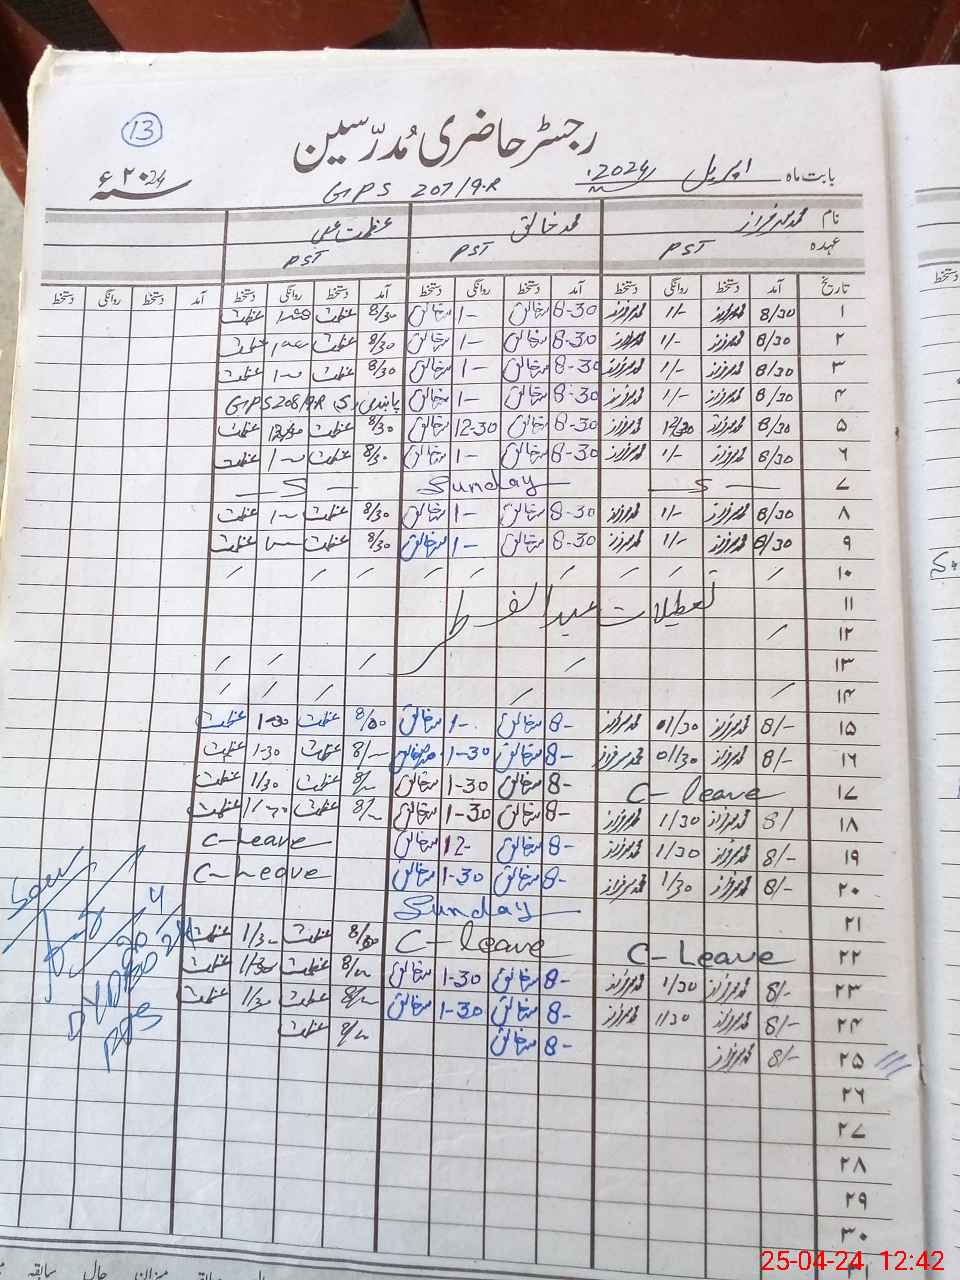 13
رجسٹر حاضری مُدرّسین
بابت ماہ اپریل 2024ء سنہ ۲۰24ء
GPS 207/9.R
نام محمد سرفراز محمد خالق عظمت علی
عہدہ PST PST PST
تاریخ آمد دستخط روانگی دستخط آمد دستخط روانگی دستخط آمد دستخط روانگی دستخط آمد دستخط روانگی دستخط
۱ 8/30 محمد سرفراز 1/- محمد سرفراز 8-30 محمد خالق 1- محمد خالق 8/30 عظمت عظمت
۲ 8/30 محمد سرفراز 1/- محمد سرفراز 8-30 محمد خالق 1- محمد خالق 8/30 عظمت عظمت
۳ 8/30 محمد سرفراز 1/- محمد سرفراز 8-30 محمد خالق 1- محمد خالق 8/30 عظمت عظمت
۴ 8/30 محمد سرفراز 1/- محمد سرفراز 8-30 محمد خالق 1- محمد خالق GPS 208/9.R
۵ 8/30 محمد سرفراز 12/30 محمد سرفراز 8-30 محمد خالق 12-30 محمد خالق 8/30 عظمت عظمت
۶ 8/30 محمد سرفراز 1/- محمد سرفراز 8-30 محمد خالق 1- محمد خالق 8/30 عظمت عظمت
۷ — S — Sunday — S —
۸ 8/30 محمد سرفراز 1/- محمد سرفراز 8-30 محمد خالق 1- محمد خالق 8/30 عظمت عظمت
۹ 8/30 محمد سرفراز 1/- محمد سرفراز 8-30 محمد خالق 1- محمد خالق 8/30 عظمت عظمت
۱۰
۱۱ تعطیلات عید الفطر
۱۲
۱۳
۱۴
۱۵ 8/- محمد سرفراز 01/30 محمد سرفراز 8- محمد خالق 1- محمد خالق 8/00 عظمت 1-30 عظمت
۱۶ 8/- محمد سرفراز 01/30 محمد سرفراز 8- محمد خالق 1-30 محمد خالق 8/- عظمت 1-30 عظمت
۱۷ C-leave 8- محمد خالق 1-30 محمد خالق 8/- عظمت 1/30 عظمت
۱۸ 8/ محمد سرفراز 1/30 محمد سرفراز 8- محمد خالق 1-30 محمد خالق 8/- عظمت 1/30 عظمت
۱۹ 8/- محمد سرفراز 1/30 محمد سرفراز 8- محمد خالق 12- محمد خالق C-Leave
۲۰ 8/- محمد سرفراز 1/30 محمد سرفراز 8- محمد خالق 1-30 محمد خالق C-Leave
۲۱ Sunday
۲۲ C-Leave C-leave 8/00 عظمت 1/30 عظمت
۲۳ 8/- محمد سرفراز 1/30 محمد سرفراز 8- محمد خالق 1-30 محمد خالق 8/- عظمت 1/30 عظمت
۲۴ 8/- محمد سرفراز 1/30 محمد سرفراز 8- محمد خالق 1-30 محمد خالق 8/- عظمت 1/30 عظمت
۲۵ 8/- محمد سرفراز 8- محمد خالق 8/- عظمت
۲۶
۲۷
۲۸
۲۹
۳۰
میزان حال سابقہ
25-04-24, 12:42